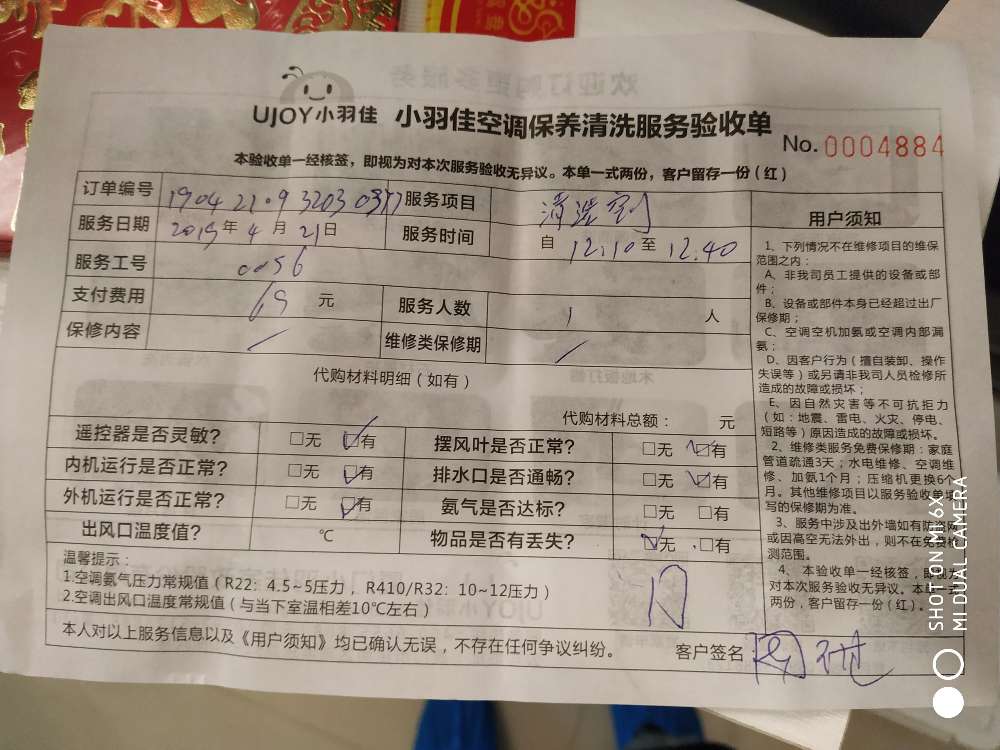 UJOY小羽佳 小羽佳空调保养清洗服务验收单
No. 0004884
本验收单一经核签，即视为对本次服务验收无异议。本单一式两份，客户留存一份(红)
订单编号 服务项目
服务日期 2019年 4 月 21日 服务时间 自 12:10 至 12:40
服务工号 0056
支付费用 69 元 服务人数 1 人
保修内容 / 维修类保修期 /
代购材料明细(如有)
代购材料总额： 元
遥控器是否灵敏? □无 □有 摆风叶是否正常? □无 □有
内机运行是否正常? □无 □有 排水口是否通畅? □无 □有
外机运行是否正常? □无 □有 氨气是否达标? □无 □有
出风口温度值? ℃ 物品是否有丢失? □无 □有
温馨提示：
1.空调氨气压力常规值(R22：4.5~5压力，R410/R32：10~12压力)
2.空调出风口温度常规值(与当下室温相差10℃左右)
本人对以上服务信息以及《用户须知》均已确认无误，不存在任何争议纠纷。 客户签名
用户须知
1、下列情况不在维修项目的维保
范围之内：
A、非我司员工提供的设备或部
件；
B、设备或部件本身已经超过出厂
保修期；
C、空调空机加氨或空调内部漏
氨；
D、因客户行为(擅自装卸、操作
失误等)或另请非我司人员检修所
造成的故障或损坏；
E、因自然灾害等不可抗拒力
(如：地震、雷电、火灾、停电、
短路等)原因造成的故障或损坏。
2、维修类服务免费保修期：家庭
管道疏通3天；水电维修、空调维
修、加氨1个月；压缩机更换6个
月。其他维修项目以服务验收单填
写的保修期为准。
3、服务中涉及出外墙如有防盗网
或因高空无法外出，则不在免费检
测范围。
4、本验收单一经核签，即视为
对本次服务验收无异议。本单一式
两份，客户留存一份(红)。
SHOT ON MI 6X
MI DUAL CAMERA